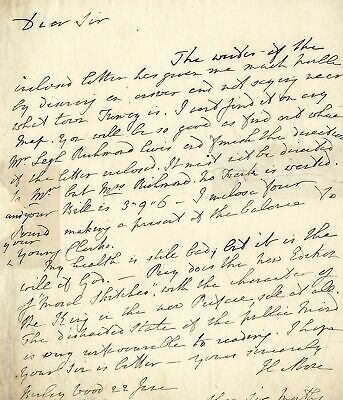 Dear Sir
The writer of the
inclosed letter has given me much trouble
by desiring an answer and not saying near
what town Turvey is. I cant find it on any
Map. You will be so good as find out where
Mr Legh Richmond lives and finish the direction
of the letter inclosed. It must not be directed
to Mr but Mrs Richmond. no Frank is wanted.
and your Bill is 3-9-6 - I inclose four
Pound making a present of the balance to
your Young Clerks.
My health is still bad, but it is the
will of God - Pray does the new Edition
of Moral Sketches with the character of
the King in the new Preface sell at all.
The distracted State of the public Mind
is very unfavourable to reading. I hope
Your Sir is better Yours sincerely
H More
Barley Wood 22 June